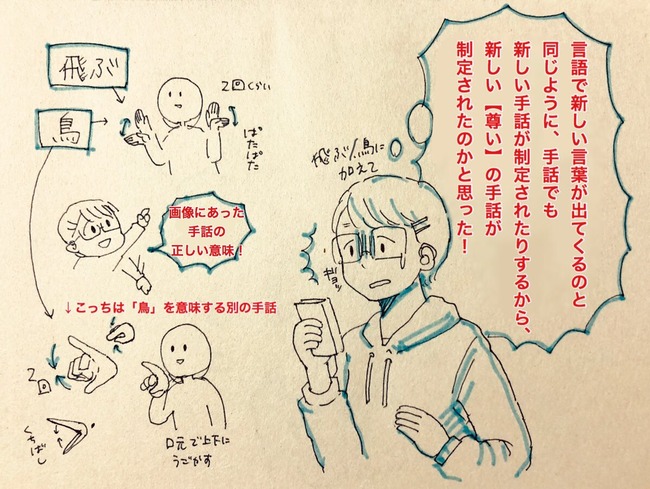 言語で新しい言葉が出てくるのと
同じように、手話でも
新しい手話が制定されたりするから、
新しい【尊い】の手話が
制定されたのかと思った！
飛ぶ/鳥に
加えて
ギョッ
飛ぶ
鳥
2回くらい
ぱたぱた
画像にあった
手話の
正しい意味！
↓こっちは「鳥」を意味する別の手話
2回
くちばし
口元で上下に
うごかす